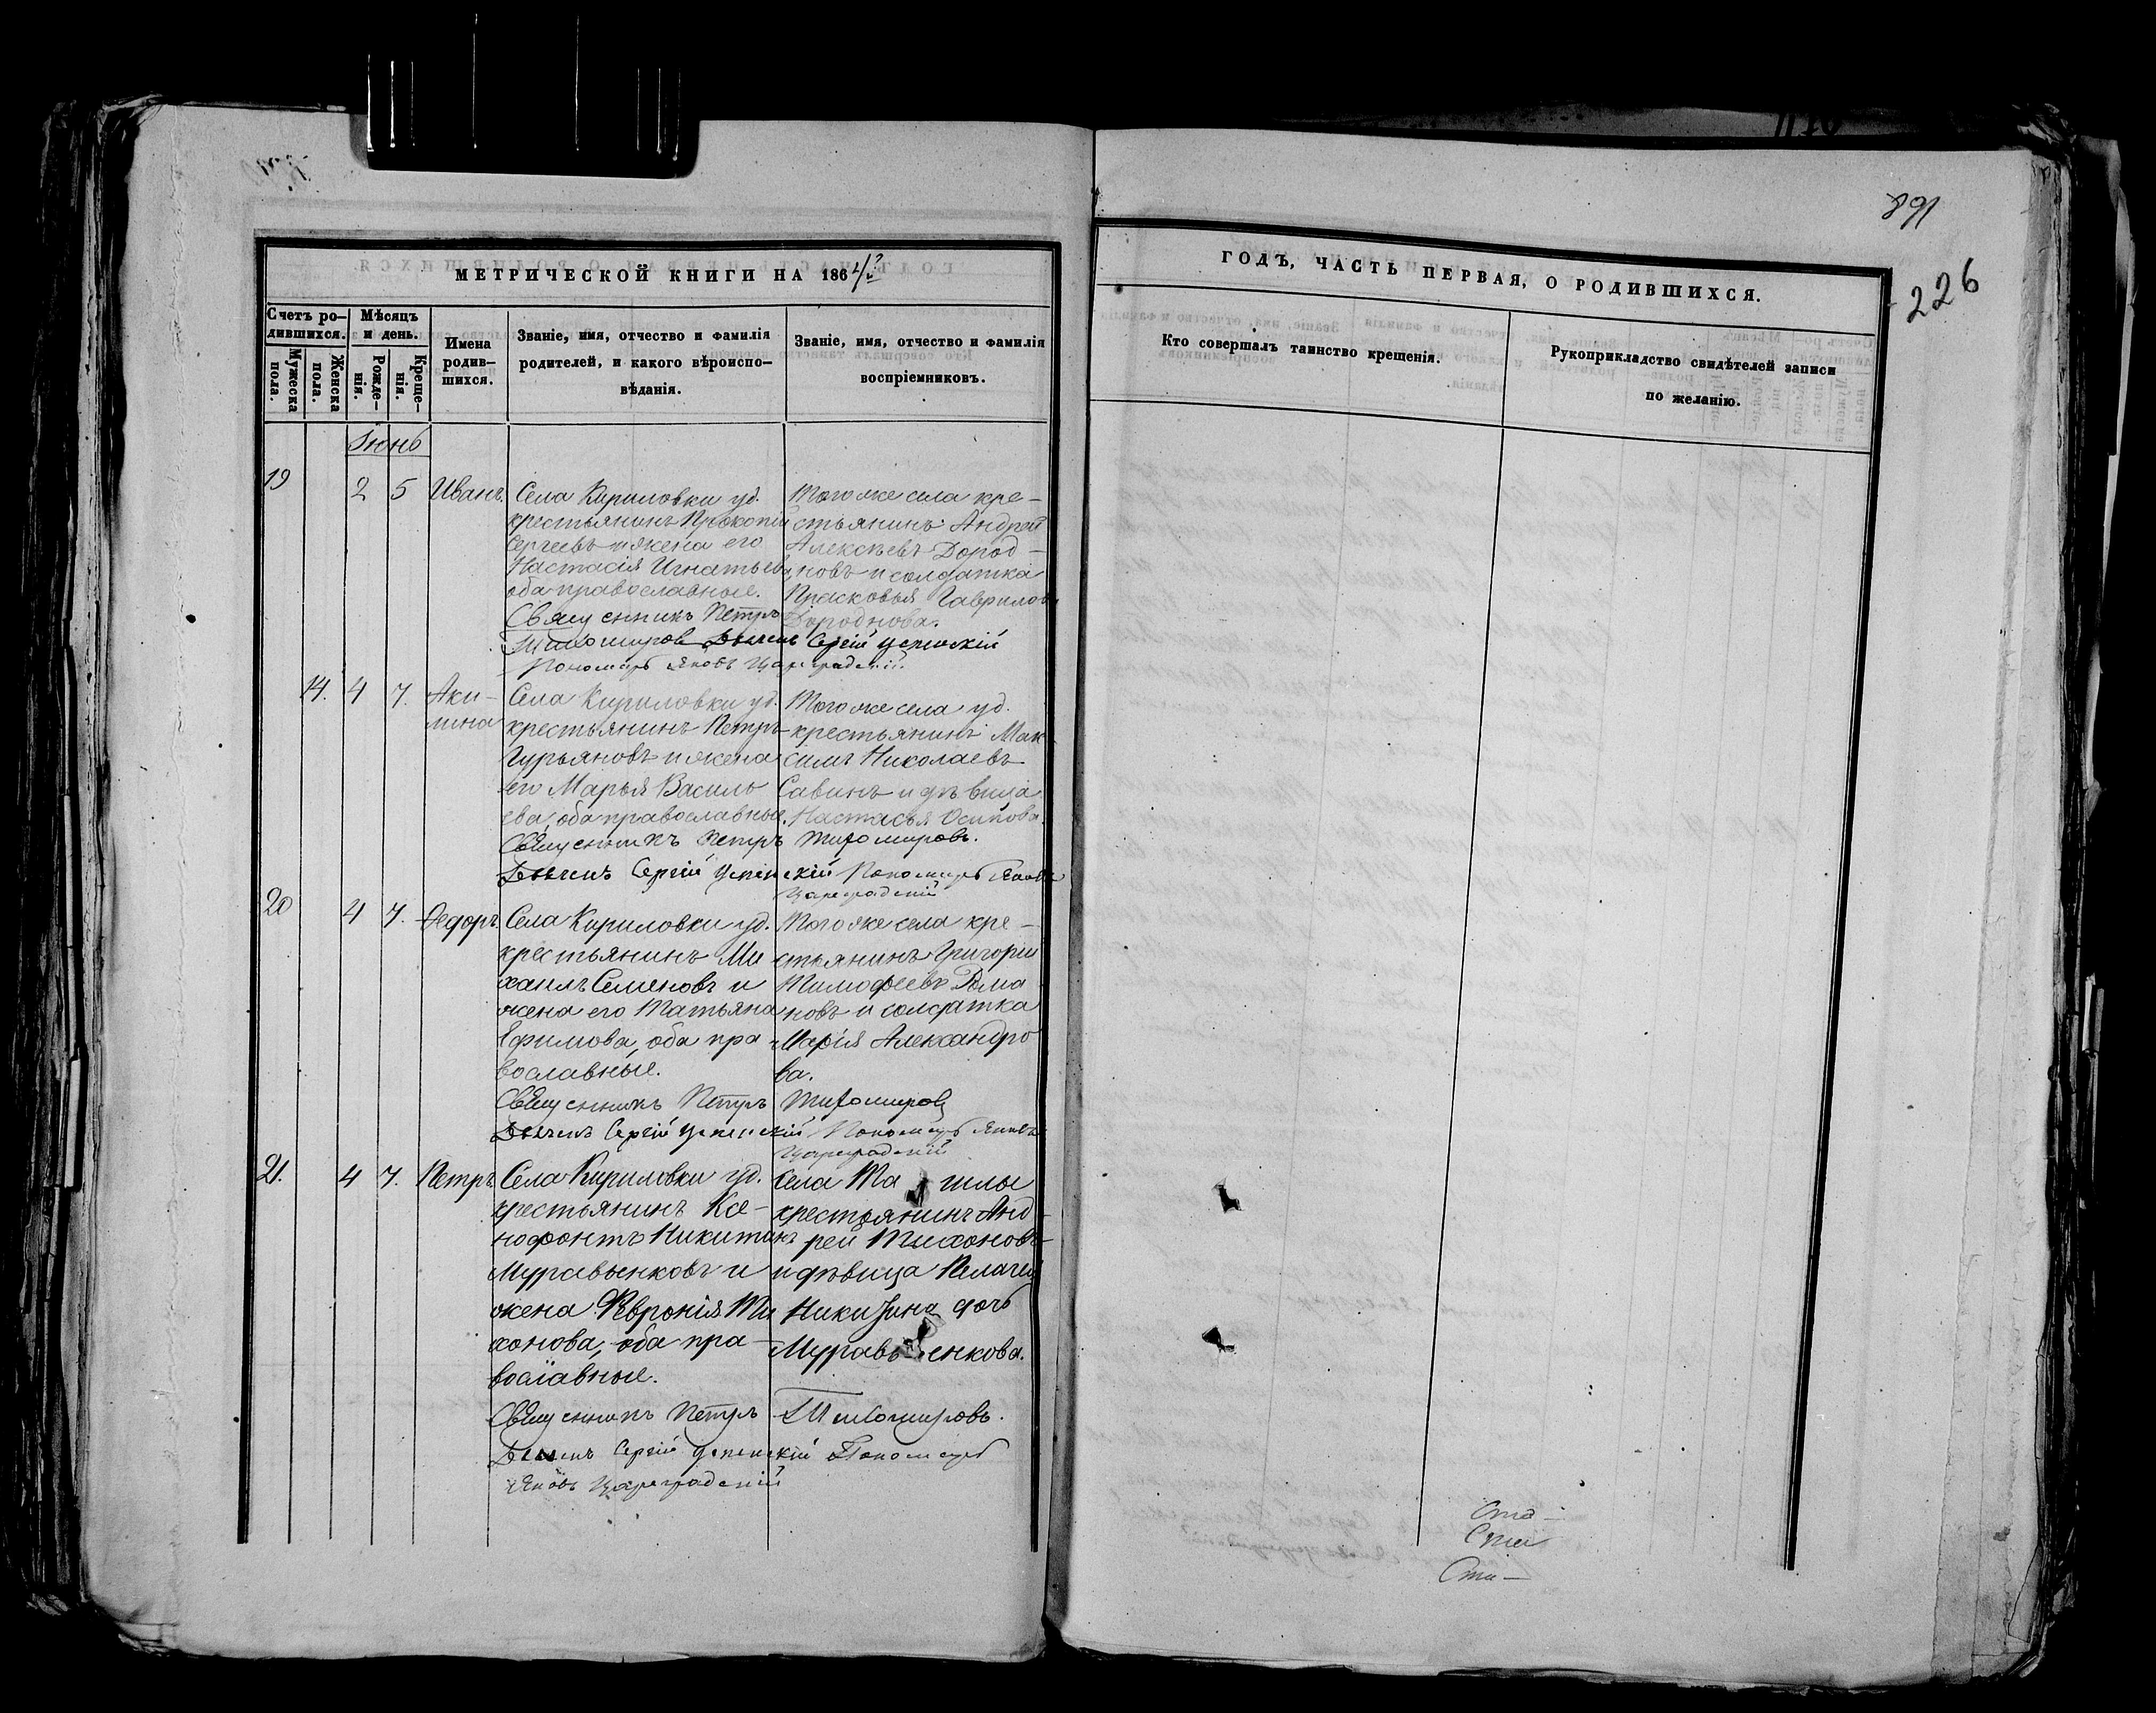 891
226
МЕТРИЧЕСКОЙ КНИГИ НА 1864й
ГОДЪ, ЧАСТЬ ПЕРВАЯ, О РОДИВШИХСЯ.
Счетъ ро-
дившихся.
Мужеска
пола.
Женска
пола.
Мѣсяцъ
и день.
Рожде-
нія.
Креще-
нія.
Имена
родив-
шихся.
Званіе, имя, отчество и фамилія
родителей, и какого вѣроиспо-
вѣданія.
Званіе, имя, отчество и фамилія
воспріемниковъ.
Кто совершалъ таинство крещенія.
Рукоприкладство свидѣтелей записи
по желанію.
Іюнь
19 2 5 Иванъ.
Села Кириловки уд.
крестьянинъ Прокопій
Сергеевъ и жена его
Настасія Игнатьева,
оба православные.
Того же села кре-
стьянинъ Андрей
Алексѣевъ Дород-
новъ и солдатка
Прасковья Гаврилова
Дороднова.
Священникъ Петръ
Тихомировъ Дьячекъ Сергій Успенскій
Пономарь Яковъ Цареградскій.
14. 4 7. Аки-
лина
Села Кириловки уд.
крестьянинъ Петръ
Гурьяновъ и жена
его Марья Василь
ева, оба православные.
Того же села уд.
крестьянинъ Мак-
симъ Николаевъ
Савинъ и дѣвица
Настасья Осипова.
Священникъ Петръ Тихомировъ.
Дьячекъ Сергій Успенскій Пономарь Яковъ
Цареградскій
20 4 7. Ѳедоръ.
Села Кириловки уд.
крестьянинъ Ми
хаилъ Семеновъ и
жена его Татьяна
Ефимова, оба пра-
вославные.
Того же села кре-
стьянинъ Григорій
Тимофеевъ Рома
новъ и солдатка
Марія Александро
ва.
Священникъ Петръ Тихомировъ
Дьячекъ Сергій Успенскій Пономарь Яковъ
Цареградскій
21. 4 7. Петръ
Села Кириловки уд.
крестьянинъ Ксе-
нофонтъ Никитинъ
Муравьенковъ и
жена Ѳевронія Ти
хонова, оба пра-
вославные.
Села
крестьянинъ Анд-
рей Тихоновъ
и дѣвица Пелагея
Никитина дочь
Муравьенкова.
Священникъ Петръ Тихомировъ.
Дьячекъ Сергій Успенскій Пономарь
Яковъ Цареградскій